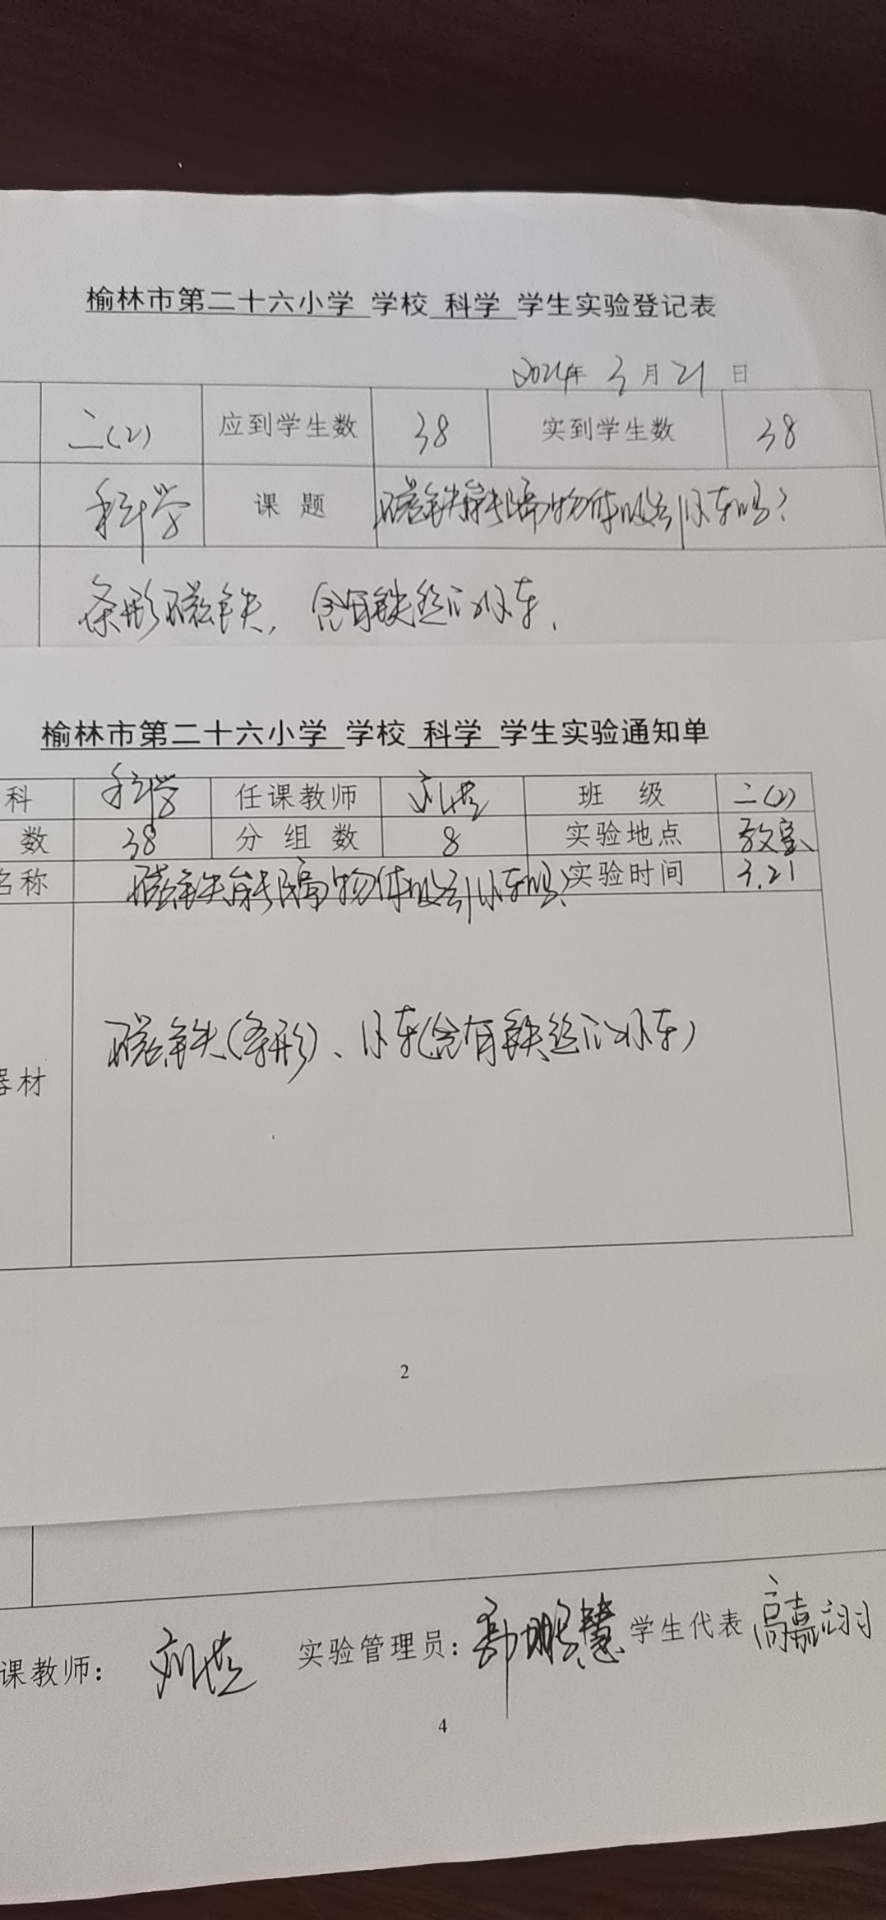 榆林市第二十六小学 学校 科学 学生实验登记表
2024年 3月21日
二(2) 应到学生数 38 实到学生数 38
科学 课题 磁铁能隔物体吸引小车吗？
条形磁铁，含有铁丝的小车．
榆林市第二十六小学 学校 科学 学生实验通知单
科 科学 任课教师 班 级 二(2)
数 38 分组数 8 实验地点 教室
名称 磁铁能隔物体吸引小车吗？ 实验时间 3.21
器材 磁铁(条形)、小车(含有铁丝的小车)
2
课教师： 实验管理员： 学生代表 高嘉翊
4